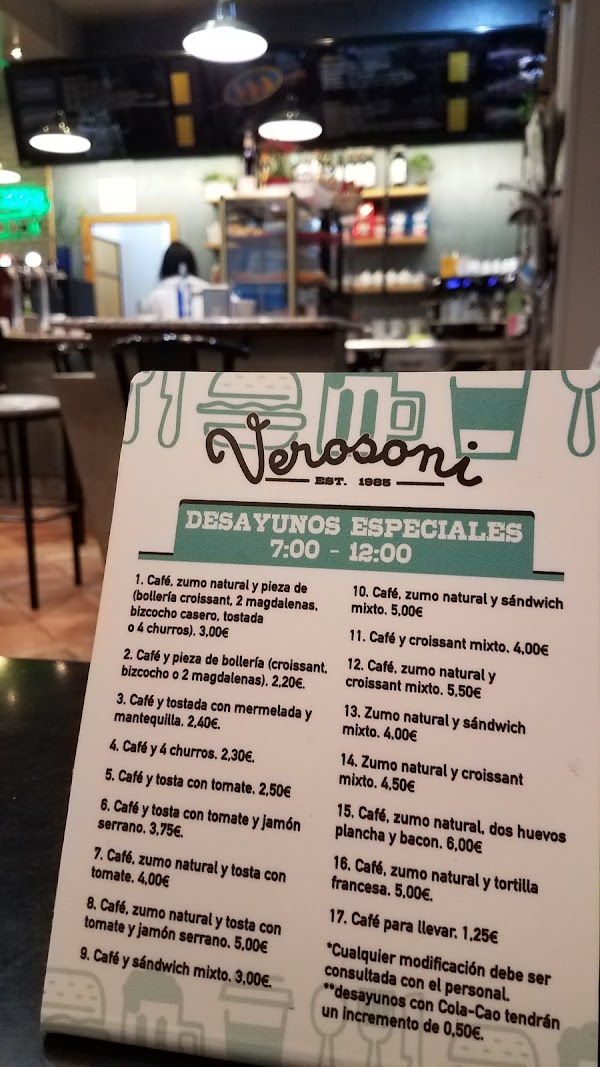 Verosoni
EST. 1985
DESAYUNOS ESPECIALES
7:00 - 12:00
1. Café, zumo natural y pieza de
(bollería croissant, 2 magdalenas,
bizcocho casero, tostada
o 4 churros). 3,00€
2. Café y pieza de bollería (croissant,
bizcocho o 2 magdalenas). 2,20€.
3. Café y tostada con mermelada y
mantequilla. 2,40€.
4. Café y 4 churros. 2,30€.
5. Café y tosta con tomate. 2,50€
6. Café y tosta con tomate y jamón
serrano. 3,75€.
7. Café, zumo natural y tosta con
tomate. 4,00€
8. Café, zumo natural y tosta con
tomate y jamón serrano. 5,00€
9. Café y sándwich mixto. 3,00€.
10. Café, zumo natural y sándwich
mixto. 5,00€
11. Café y croissant mixto. 4,00€
12. Café, zumo natural y
croissant mixto. 5,50€
13. Zumo natural y sándwich
mixto. 4,00€
14. Zumo natural y croissant
mixto. 4,50€
15. Café, zumo natural, dos huevos
plancha y bacon. 6,00€
16. Café, zumo natural y tortilla
francesa. 5,00€.
17. Café para llevar. 1,25€
*Cualquier modificación debe ser
consultada con el personal.
**desayunos con Cola-Cao tendrán
un incremento de 0,50€.